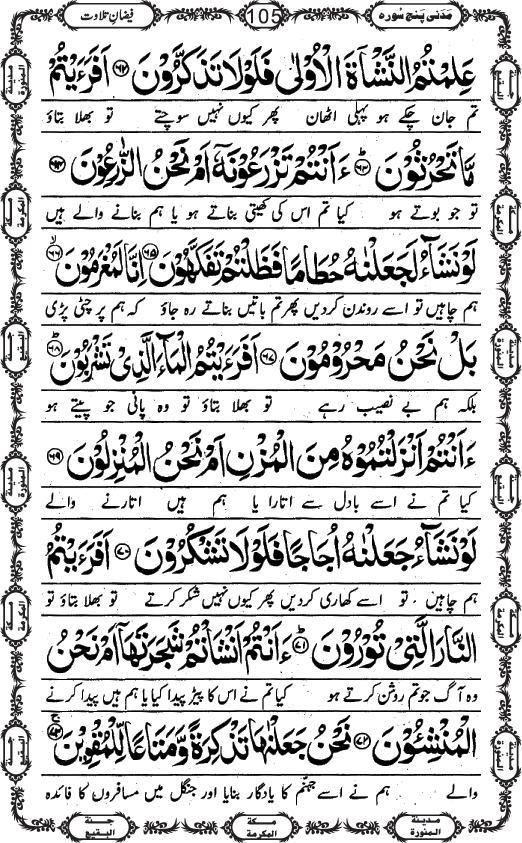 مَدَنی پنج سورہ
105
فیضانِ تلاوت
عَلِمْتُمُ النَّشْاَةَ الْاُوْلٰى فَلَوْلَا تَذَكَّرُوْنَ ﴿۶۲﴾ اَفَرَءَیْتُمْ
تم جان چکے ہو پہلی اٹھان پھر کیوں نہیں سوچتے تو بھلا بتاؤ
مَّا تَحْرُثُوْنَ ﴿۶۳﴾ ءَاَنْتُمْ تَزْرَعُوْنَهٗۤ اَمْ نَحْنُ الزّٰرِعُوْنَ ﴿۶۴﴾
تو جو بوتے ہو کیا تم اس کی کھیتی بناتے ہو یا ہم بنانے والے ہیں
لَوْ نَشَآءُ لَجَعَلْنٰهُ حُطَامًا فَظَلْتُمْ تَفَكَّهُوْنَ ﴿۶۵﴾ اِنَّا لَمُغْرَمُوْنَ ﴿۶۶﴾
ہم چاہیں تو اسے روندن کردیں پھر تم باتیں بناتے رہ جاؤ کہ ہم پر چٹی پڑی
بَلْ نَحْنُ مَحْرُوْمُوْنَ ﴿۶۷﴾ اَفَرَءَیْتُمُ الْمَآءَ الَّذِیْ تَشْرَبُوْنَ ﴿۶۸﴾
بلکہ ہم بے نصیب رہے تو بھلا بتاؤ تو وہ پانی جو پیتے ہو
ءَاَنْتُمْ اَنْزَلْتُمُوْهُ مِنَ الْمُزْنِ اَمْ نَحْنُ الْمُنْزِلُوْنَ ﴿۶۹﴾
کیا تم نے اسے بادل سے اتارا یا ہم ہیں اتارنے والے
لَوْ نَشَآءُ جَعَلْنٰهُ اُجَاجًا فَلَوْلَا تَشْكُرُوْنَ ﴿۷۰﴾ اَفَرَءَیْتُمُ
ہم چاہیں تو اسے کھاری کردیں پھر کیوں نہیں شکر کرتے تو بھلا بتاؤ تو
النَّارَ الَّتِیْ تُوْرُوْنَ ﴿۷۱﴾ ءَاَنْتُمْ اَنْشَاْتُمْ شَجَرَتَهَاۤ اَمْ نَحْنُ
وہ آگ جو تم روشن کرتے ہو کیا تم نے اس کا پیڑ پیدا کیا یا ہم ہیں پیدا کرنے
الْمُنْشِـُٔوْنَ ﴿۷۲﴾ نَحْنُ جَعَلْنٰهَا تَذْكِرَةً وَّ مَتَاعًا لِّلْمُقْوِیْنَ ﴿۷۳﴾
والے ہم نے اسے جہنّم کا یادگار بنایا اور جنگل میں مسافروں کا فائدہ
مدینۃ المنورۃ
مکۃ المکرمۃ
جنۃ البقیع